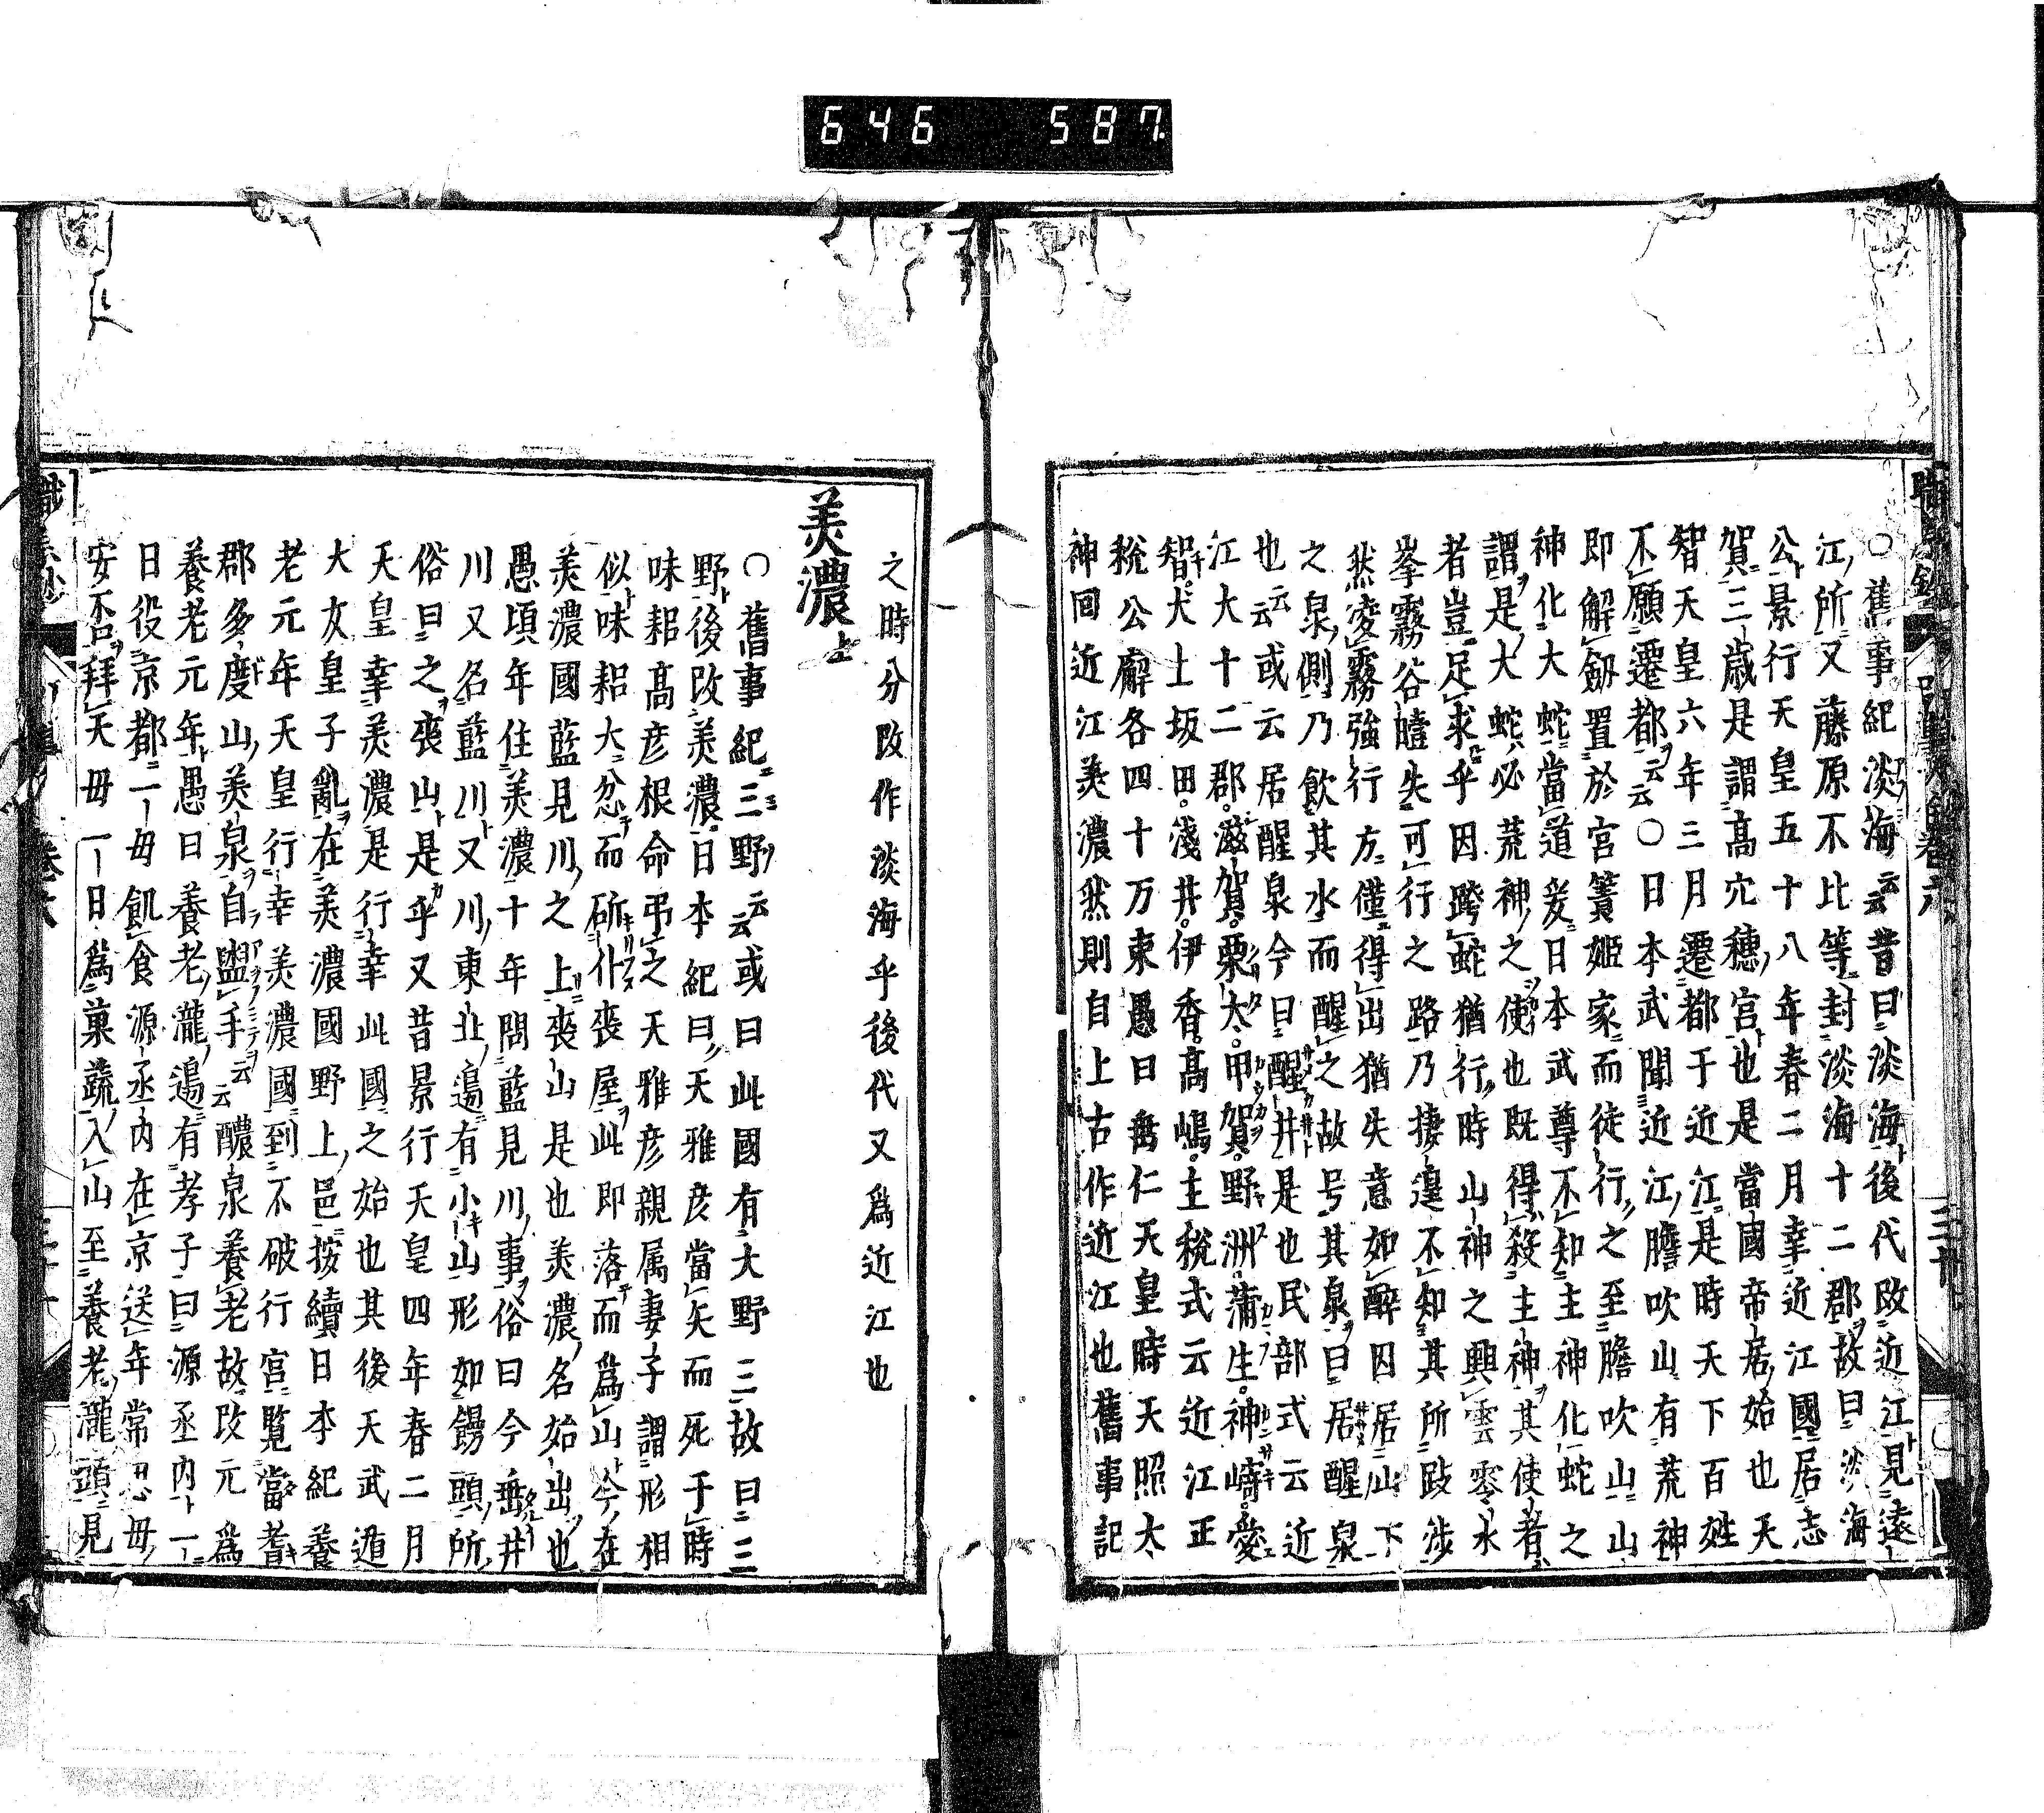 646 587
○舊事紀淡海云云昔曰淡海後代改近江見遠
江所又藤原不比等封淡海十二郡故曰淡海
公景行天皇五十八年春二月幸近江國居志
賀三歲是謂高穴穗宮也是當國帝居始也天
智天皇六年三月遷都于近江是時天下百姓
不願遷都云云○日本武聞近江膽吹山有荒神
即解劔置於宮簀姬家而徒行之至膽吹山山
神化大蛇當道爰日本武尊不知主神化蛇之
謂是大蛇必荒神之使也既得殺主神其使者
者豈足求乎因跨蛇猶行時山神之興雲零氷
峯霧谷曀失可行之路乃捿遑不知其所跋涉
然凌霧強行方僅得出猶失意如醉因居山下
之泉側乃飮其水而醒之故号其泉曰居醒泉
也云云或云居醒泉今曰醒井是也民部式云近
江大十二郡滋賀栗太甲賀野洲蒲生神崎愛
智犬上坂田淺井伊香高嶋主稅式云近江正
稅公廨各四十万束愚曰垂仁天皇時天照太
神囘近江美濃然則自上古作近江也舊事記
之時分改作淡海乎後代又爲近江也
美濃上
○舊事紀三野云云或曰此國有大野三故曰三
野後改美濃日本紀曰天雅彦當矢而死于時
味耜高彦根命弔之天雅彦親属妻子謂形相
似味耜大忿而斫仆喪屋此即落而爲山今在
美濃國藍見川之上喪山是也美濃名始出也
愚頃年住美濃十年問藍見川事俗曰今垂井
川又名藍川又川東北邊有小山形如饅頭所
俗曰之喪山是乎又昔景行天皇四年春二月
天皇幸美濃是行幸此國之始也其後天武遁
大友皇子亂在美濃國野上邑按續日本紀養
老元年天皇行幸美濃國到不破行宮覽當耆
郡多度山美泉自盥手云云醴泉養老故改元爲
養老元年愚曰養老瀧邊有孝子曰源丞內一
日役京都一母飢食源丞內在京送年常思母
安不只拜天毋一日爲菓蔬入山至養老瀧頭見